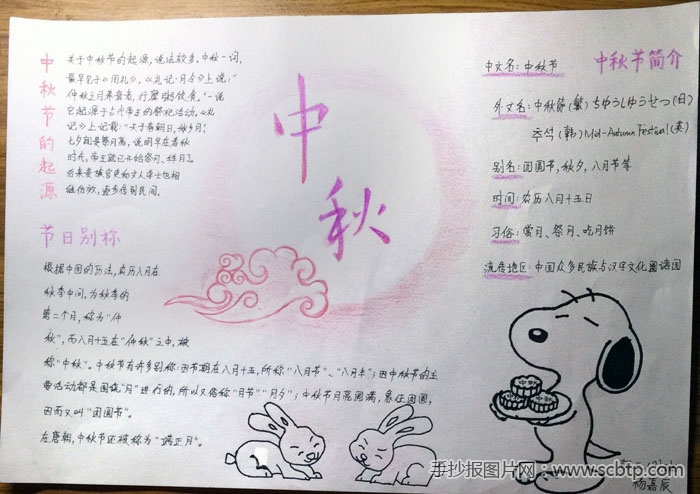 中秋节的起源
关于中秋节的起源，说法较多。中秋一词，
最早见于《周礼》。《礼记·月令》上说："
仲秋之月养衰老，行糜粥饮食。"一说
它起源于古代帝王的祭祀活动。《礼
记》上记载："天子春朝日，秋夕月。"
七夕就是祭月亮，说明早在春秋
时代，帝王就已开始祭月、拜月了。
后来贵族官吏和文人学士也相
继仿效，逐步传到民间。
中秋
中秋节简介
中文名：中秋节
外文名：中秋節（繁）ちゅうしゅうせつ（日）
추석（韩）Mid-Autumn Festival（英）
别名：团圆节，秋夕，八月节等
时间：农历八月十五日
习俗：赏月、祭月、吃月饼
流传地区：中国众多民族与汉字文化圈诸国
节日别称
根据中国的历法，农历八月在
秋季中间，为秋季的
第二个月，称为"仲
秋"，而八月十五在"仲秋"之中，被
称"中秋"。中秋节有许多别称：因节期在八月十五，所称"八月节"、"八月半"；因中秋节的主
要活动都是围绕"月"进行的，所以又俗称"月节""月夕"；中秋节月亮圆满，象征团圆，
因而又叫"团圆节"。
在唐朝，中秋节还被称为"端正月"。
中秋
中秋
中秋
手抄报图片网：www.scbtp.com
杨嘉辰